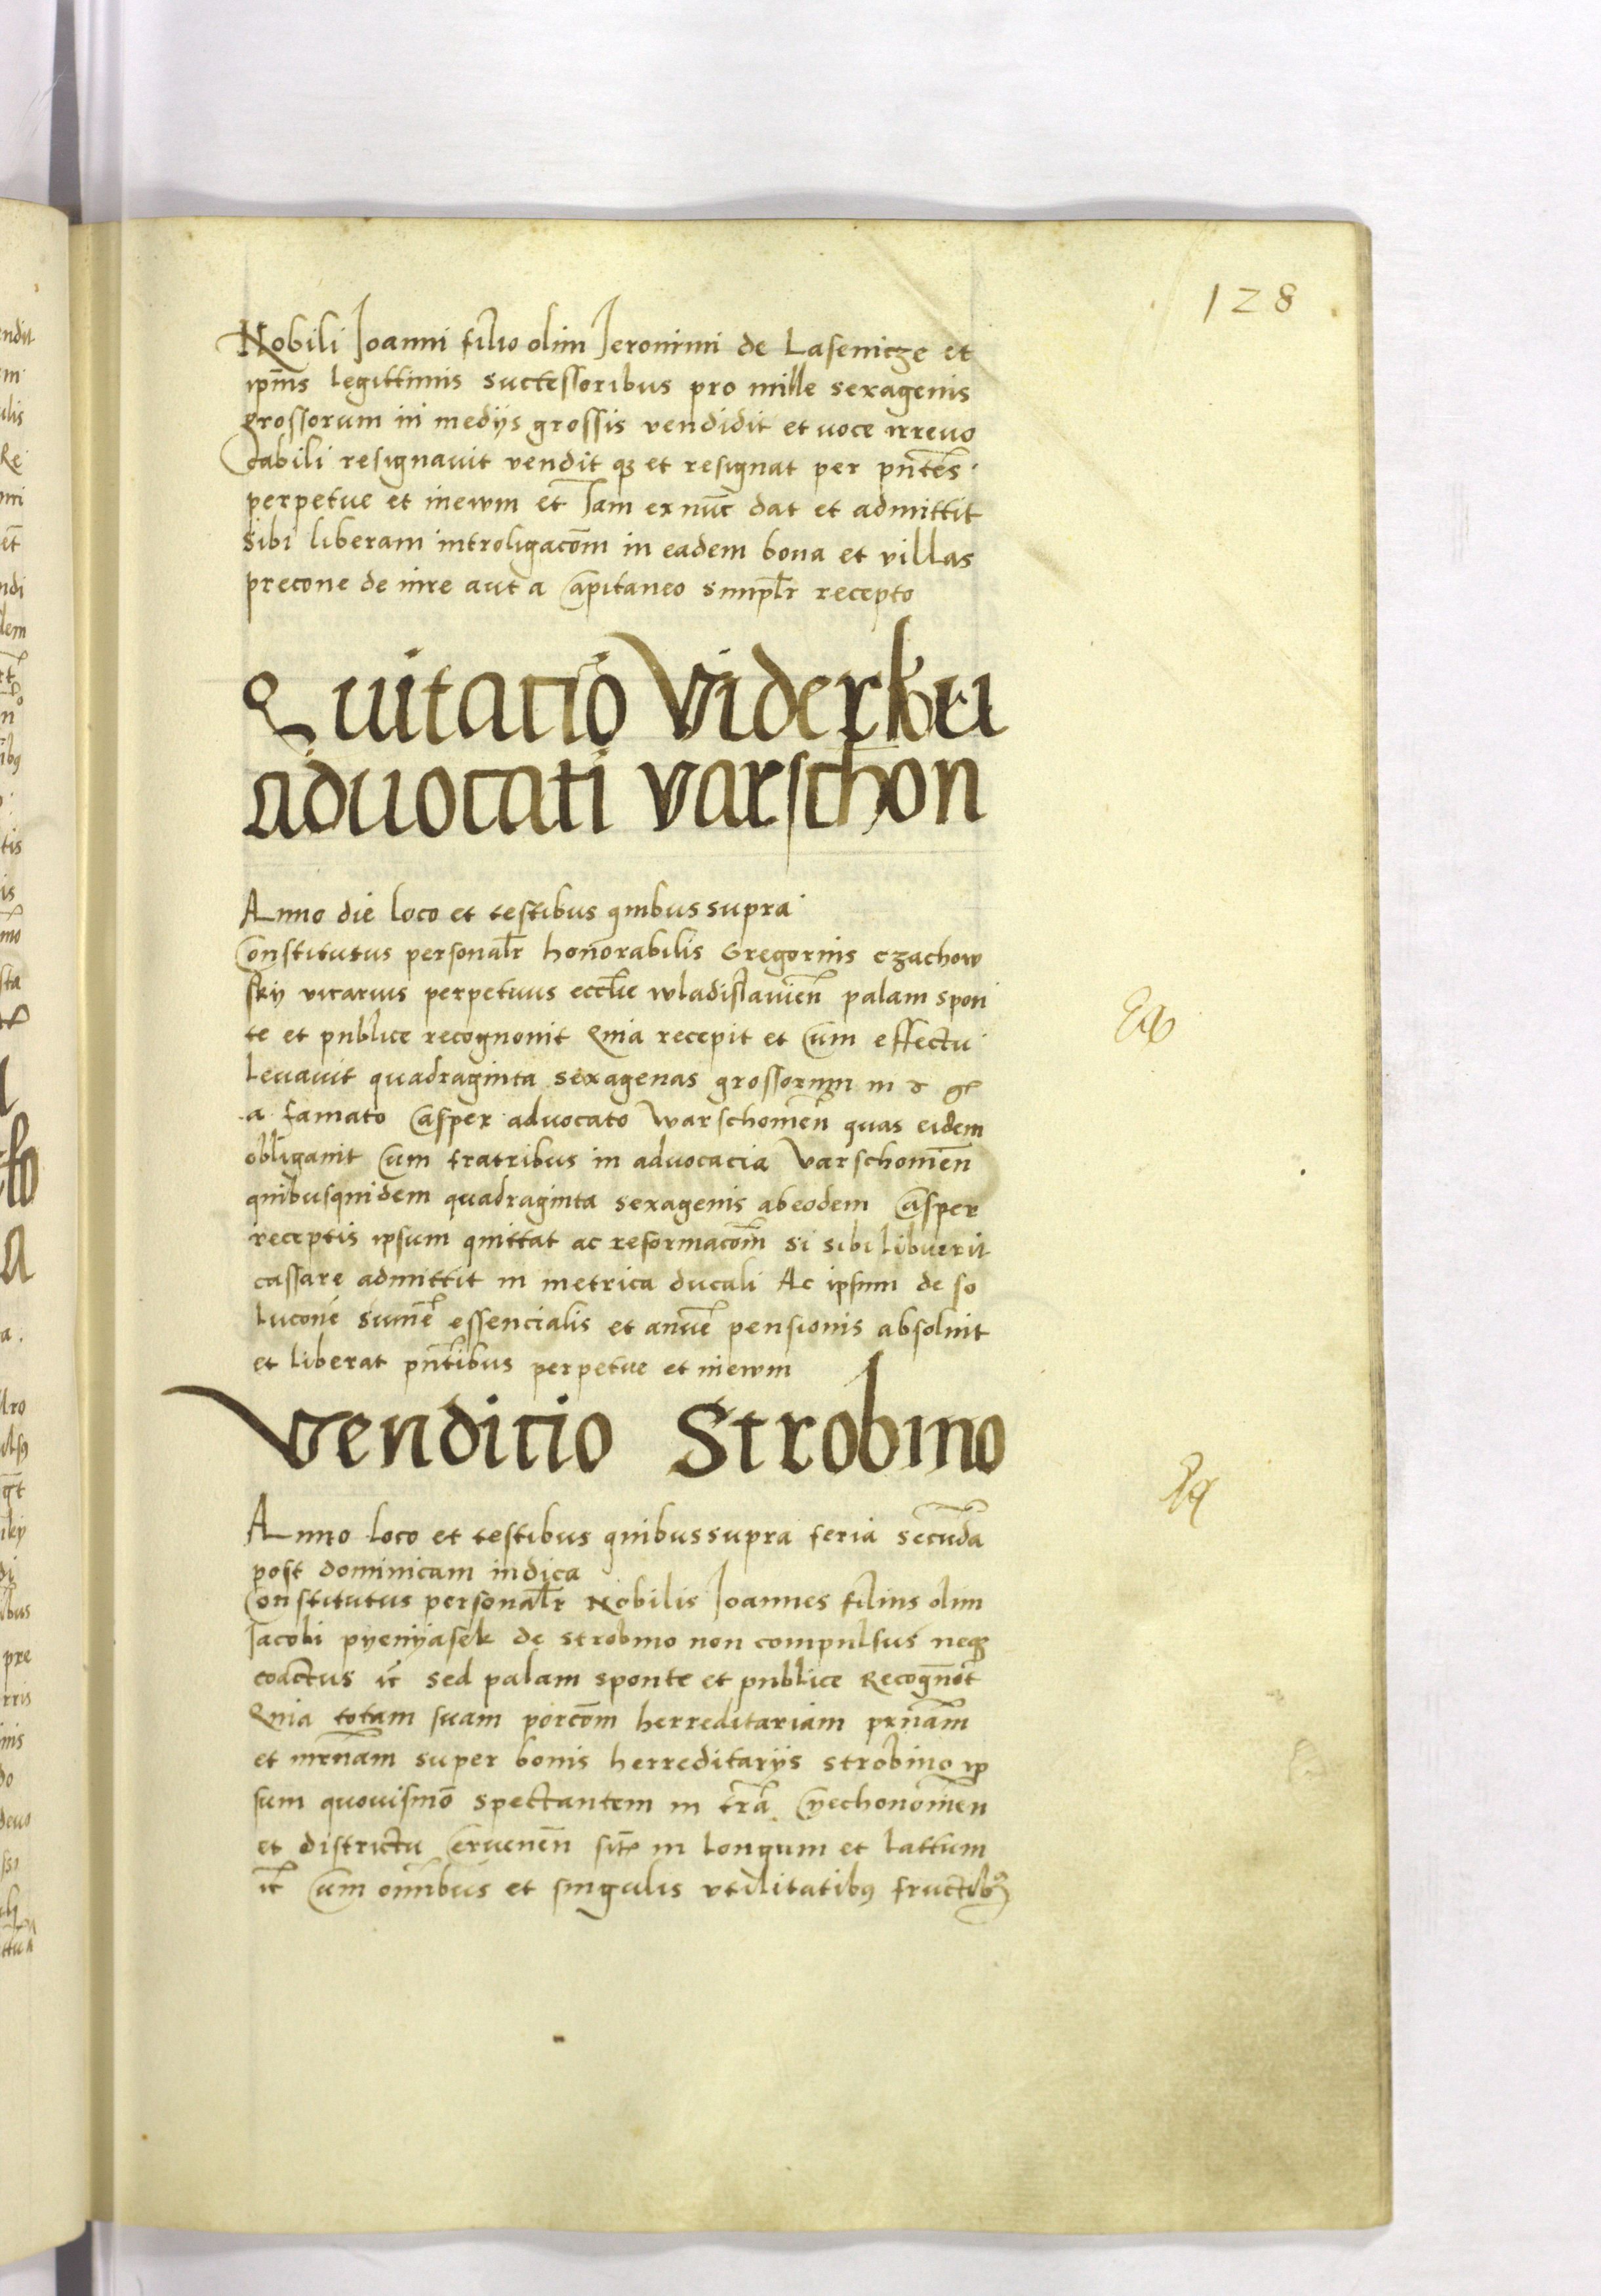 128
Nobili Joanni filio olim Jeronimi de Lasenicze et
ipīus legittimis successoribus pro mille sexagenis
grossorum in medijs grossis vendidit et voce irrevo
cabili resignavit vendit qȝ et resignat per pn̄tes
perpetue et inewm et Jam ex nūc dat et admittit
sibi liberam introligacōm in eadem bona et villas
precone de iure aut a Capitaneo simplr̄ recepto
Quitatio Viderkeu
advocati varschon
Anno die loco et testibus quibus supra
Constitutus personalr̄ honorabilis Gregorius czachow
sky vicarius perpetuus eccl̄ie wladislavien̄ palam spon
te et publice recognovit Quia recepit et cum effectu
levavit quadraginta sexagenas grossorum in d gr̄
a famato Casper advocato warschovien̄ quas eidem
obligavit cum fratribus in advocacia varschovien̄
quibusquidem quadraginta sexagenis ab eodem Casper
receptis ipsum quittat ac reformacōm si sibi libuerit
cassare admittit in metrica ducali Ac ipsum de so
lucōne summe essencialis et annue pensionis absolvit
et liberat pn̄tibus perpetue et inewm
Venditio Strobino
Anno loco et testibus quibus supra feria secūda
post dominicam indica
Constitutus personalr̄ Nobilis Joannes filius olim
Jacobi pyenyasek de strobino non compulsus neqȝ
coactus ic̄ sed palam sponte et publice Recogn̄ot
Quia totam suam porcōm herreditariam prn̄am
et mrn̄am super bonis herreditarijs strobino ip
sum quovismō spectantem in tr̄a Cyechonomien̄
et districtu Cervenen̄ sit̄ in longum et lattum
ic̄ cum omībus et singulis vtilitatibȝ fructibȝ